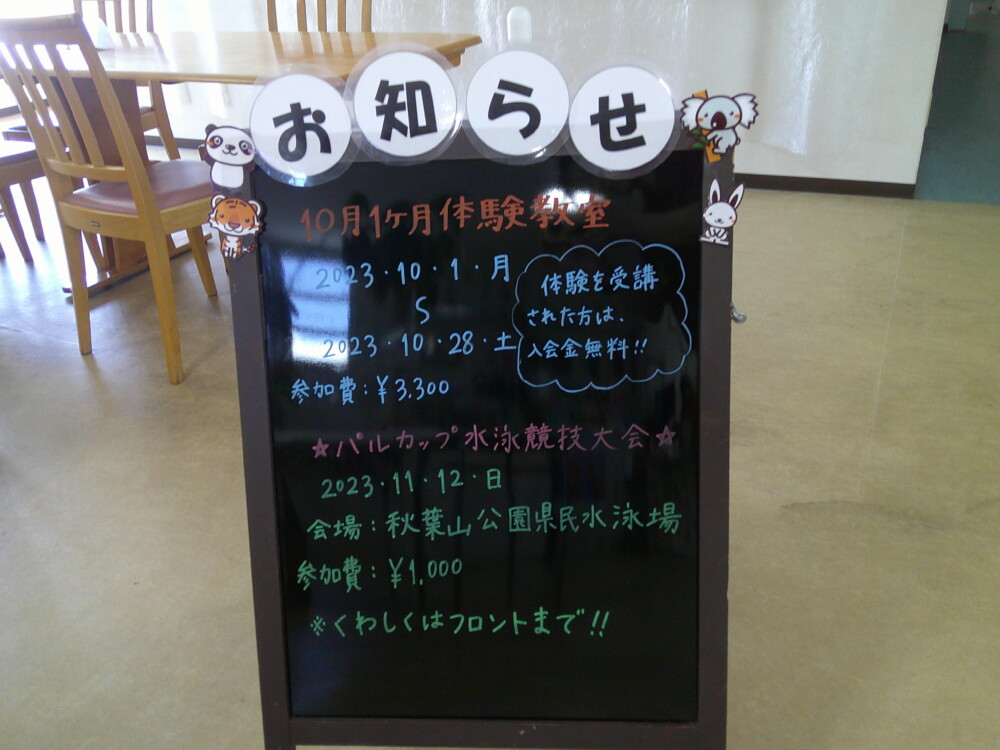 お知らせ
10月1ヶ月体験教室
2023・10・1・月
S
2023・10・28・土
体験を受講
された方は、
入会金無料!!
参加費:¥3,300
☆パルカップ水泳競技大会☆
2023・11・12・日
会場:秋葉山公園県民水泳場
参加費:¥1,000
※くわしくはフロントまで!!